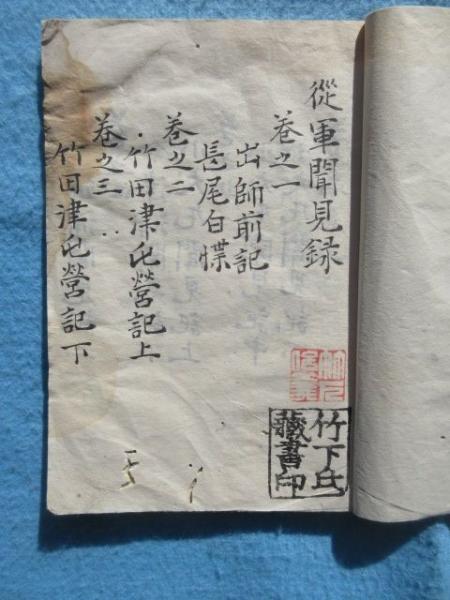 從軍聞見録
卷之一
出師前記
長尾白
卷之二
・竹田津屯營記上
卷之三
竹田津屯營記下
竹下氏
藏書印